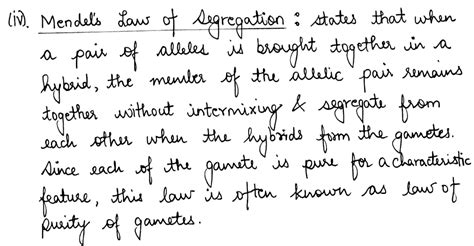 (iv). Mendel's Law of Segregation : states that when
a pair of alleles is brought together in a
hybrid, the member of the allelic pair remains
together without intermixing & segregate from
each other when the hybrids form the gametes.
Since each of the gamete is pure for a characteristic
feature, this law is often known as law of
purity of gametes.